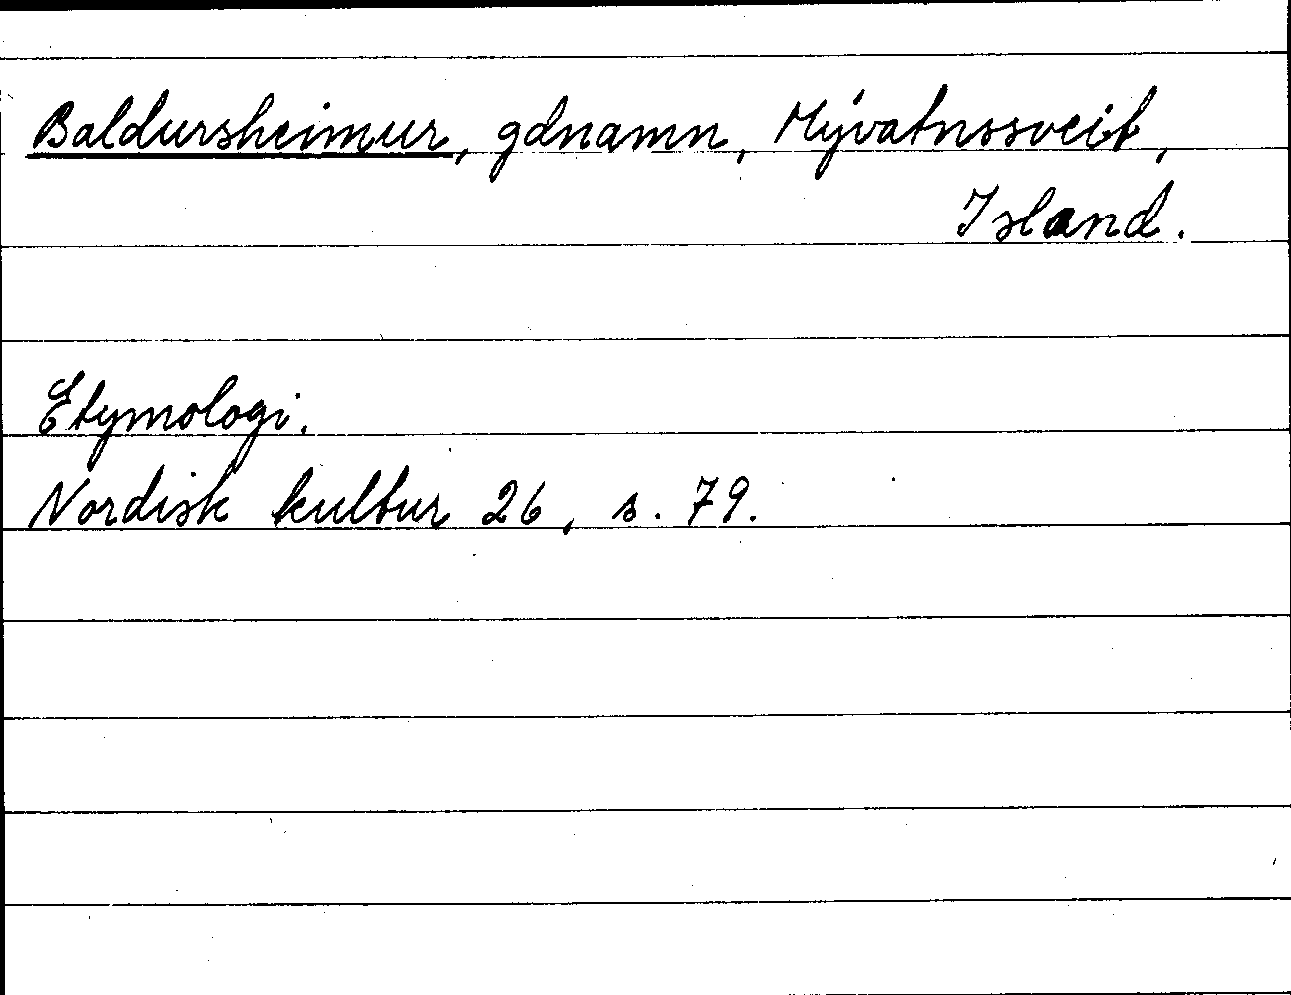 Baldursheimur, gdnamn, Mývatnssveit,
Island.
Etymologi.
Nordisk kultur 26, s. 79.